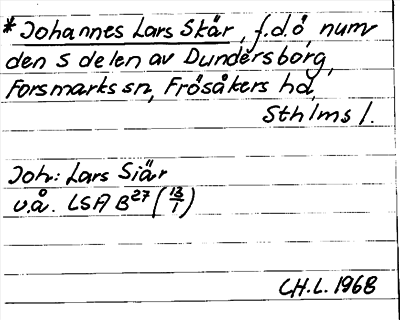 * Johannes Lars Skär, f.d.ö, num
den S delen av Dundersborg,
Forsmarks sn, Frösåkers hd,
Sthlms l.
Joh: Lars Siär
u.å. LSA B27 (13/1)
CH.L. 1968